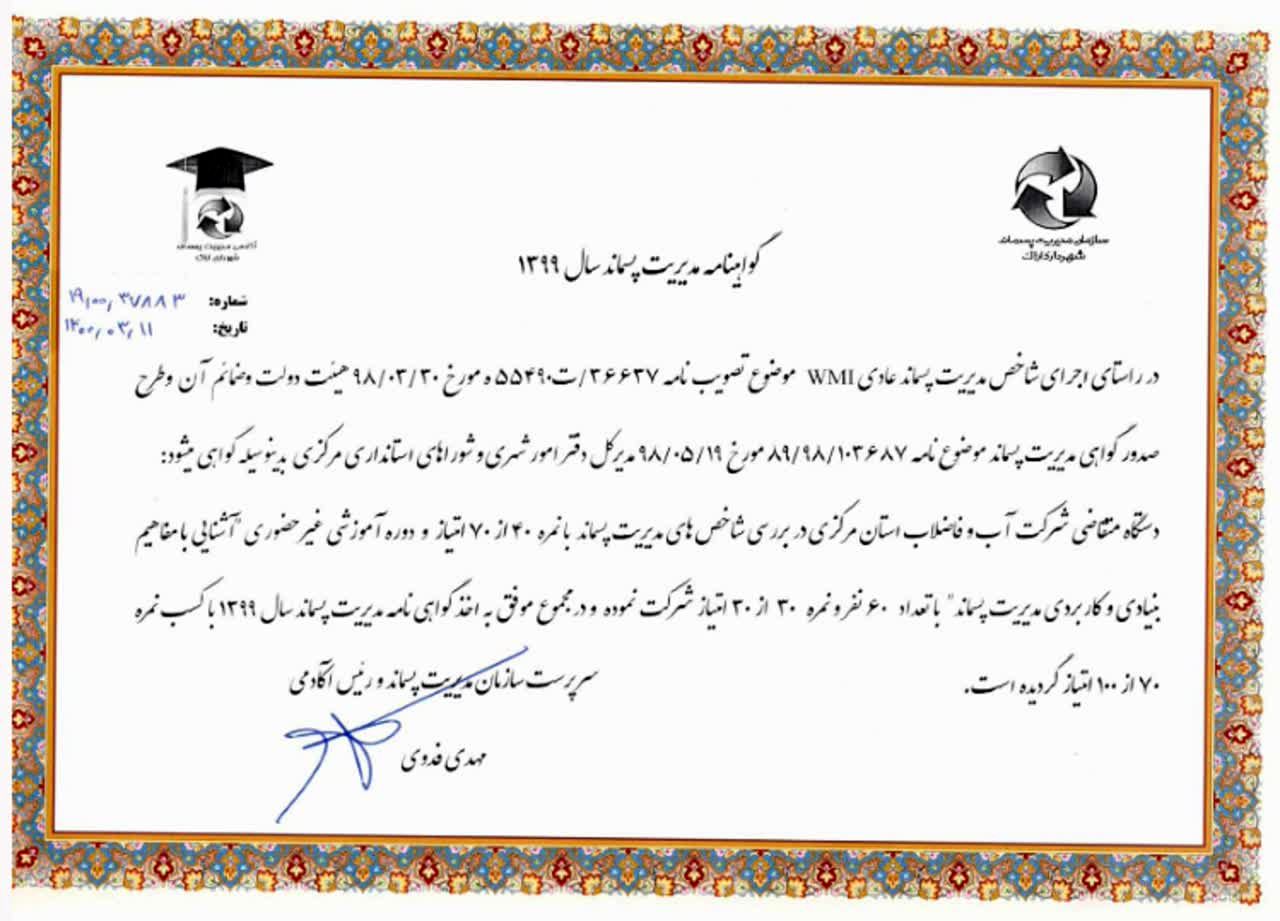 سازمان مدیریت پسماند
شهرداری اراک
آکادمی مدیریت پسماند
شهرداری اراک
گواهینامه مدیریت پسماند سال ۱۳۹۹
شماره: ۱۹,۰۰,۳۷۸۸۳
تاریخ: ۱۴۰۰,۰۳,۱۱
در راستای اجرای شاخص مدیریت پسماند عادی WMI موضوع تصویب نامه ۳۶۶۳۷/ت۵۵۴۹۰ ه مورخ ۹۸/۰۳/۳۰ هیئت دولت وضائم آن وطرح
صدور گواهی مدیریت پسماند موضوع نامه ۸۹/۹۸/۱۰۳۶۸۷ مورخ ۹۸/۰۵/۱۹ مدیرکل دفتر امور شهری و شوراهای استانداری مرکزی بدینوسیله گواهی میشود:
دستگاه متقاضی شرکت آب و فاضلاب استان مرکزی در بررسی شاخص های مدیریت پسماند با نمره ۴۰ از ۷۰ امتیاز و دوره آموزشی غیر حضوری "آشنایی با مفاهیم
بنیادی و کاربردی مدیریت پسماند" با تعداد ۶۰ نفر و نمره ۳۰ از ۳۰ امتیاز شرکت نموده و در مجموع موفق به اخذ گواهی نامه مدیریت پسماند سال ۱۳۹۹ با کسب نمره
۷۰ از ۱۰۰ امتیاز گردیده است.
سرپرست سازمان مدیریت پسماند و رئیس آکادمی
مهدی فدوی